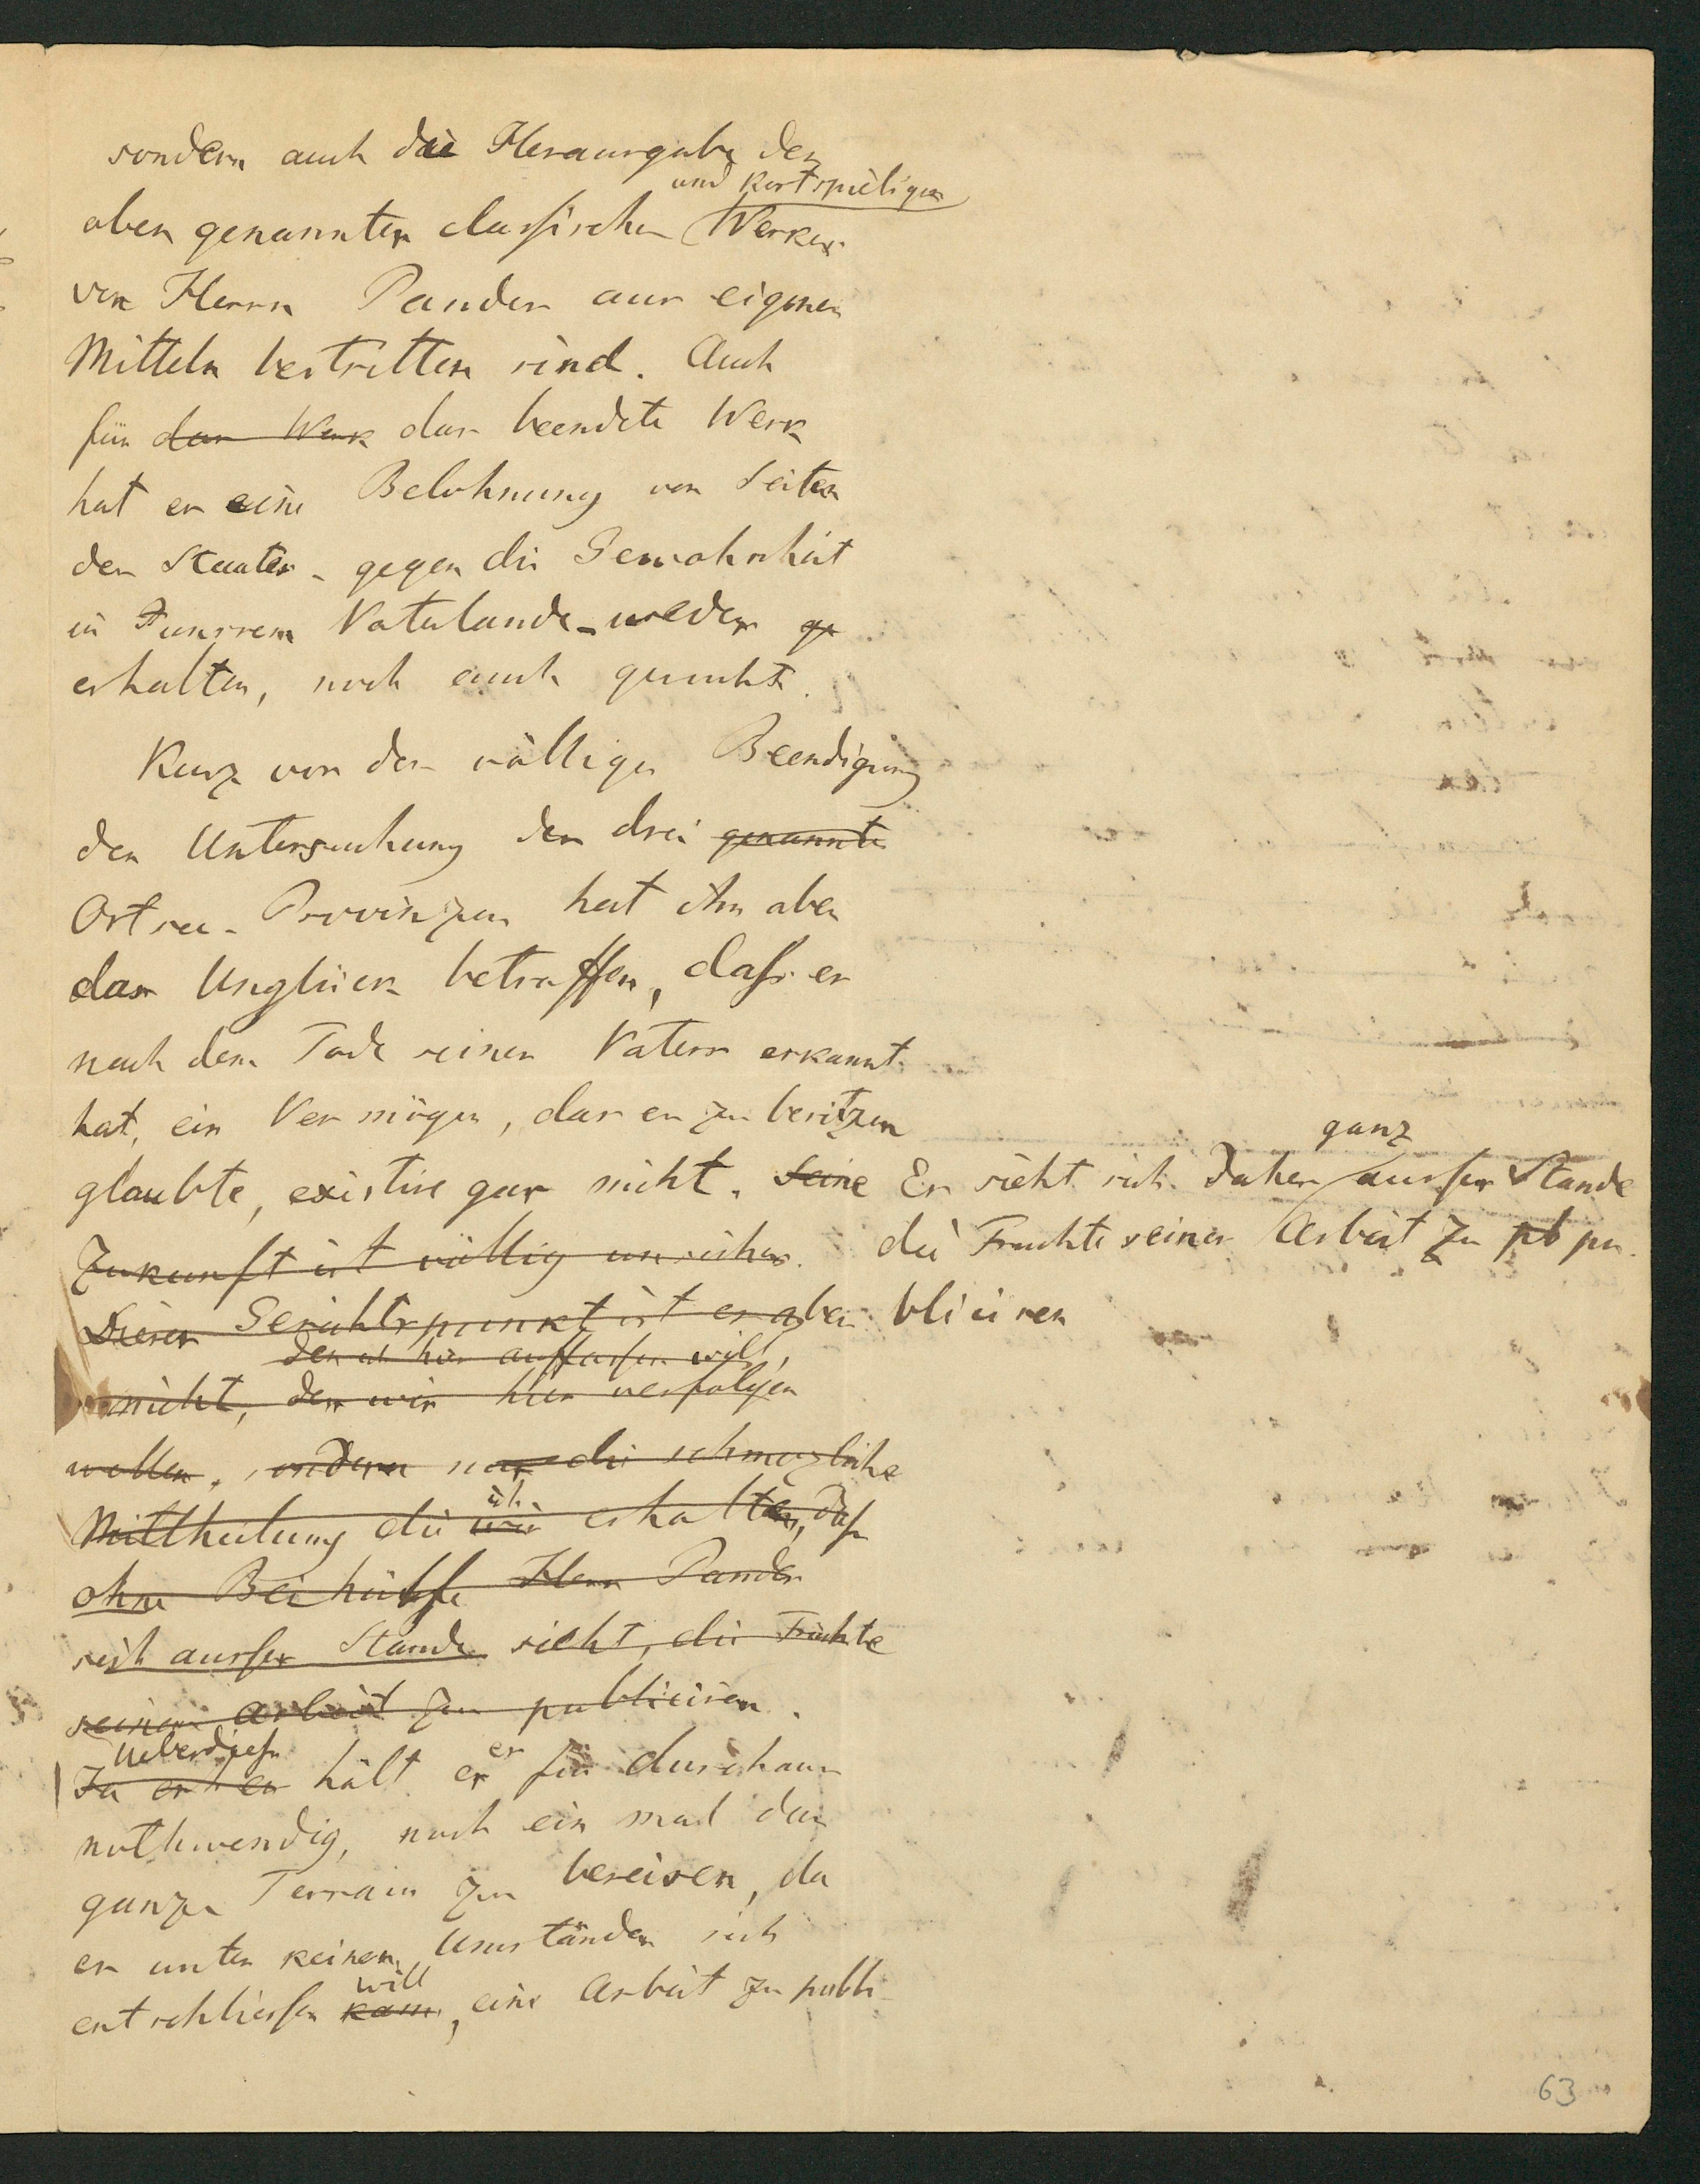 sondern auch die Herausgabe des
und kostspieligen
oben genannten classischen Werkes
von Herrn Pander aus eigenen
Mitteln bestritten sind. Auch
für das Werk das beendete Werk
hat er eine Belohnung von Seiten
des Staates - gegen die Gewohnheit
in unsrem Vaterlande - weder ge
erhalten, noch auch gesucht.
Kurz vor der völligen Beendigung
der Untersuchung der drei genannte
Ostsee-Provinzen hat ihn aber
das Unglück betroffen, dass er
nach dem Tode seines Vaters erkannt
hat, ein Vermögen, das er zu besitzen
glaubte, existire gar nicht. Seine
Zukunft ist völlig unsicher.
Dieser Gesichtspunkt ist es aber
den ich hier auffassen will,
nicht, den wir hier verfolgen
wollen, sondern nur die schmerzliche
ich
Mittheilung die wir erhalten, dass
ohne Beihülfe Herr Pander
sich ausser Stande sieht, die Früchte
seiner Arbeit zu publiciren.
Ueberdiess er
Ja er hält es für durchaus
nothwendig, noch ein mal das
ganze Terrain zu bereisen, da
er unter keinen Umständen sich
will
entschliessen kann, eine Arbeit zu publi
ganz
Er sieht sich daher ausser Stande
die Früchte seiner Arbeit zu pb pu
bliciren
63